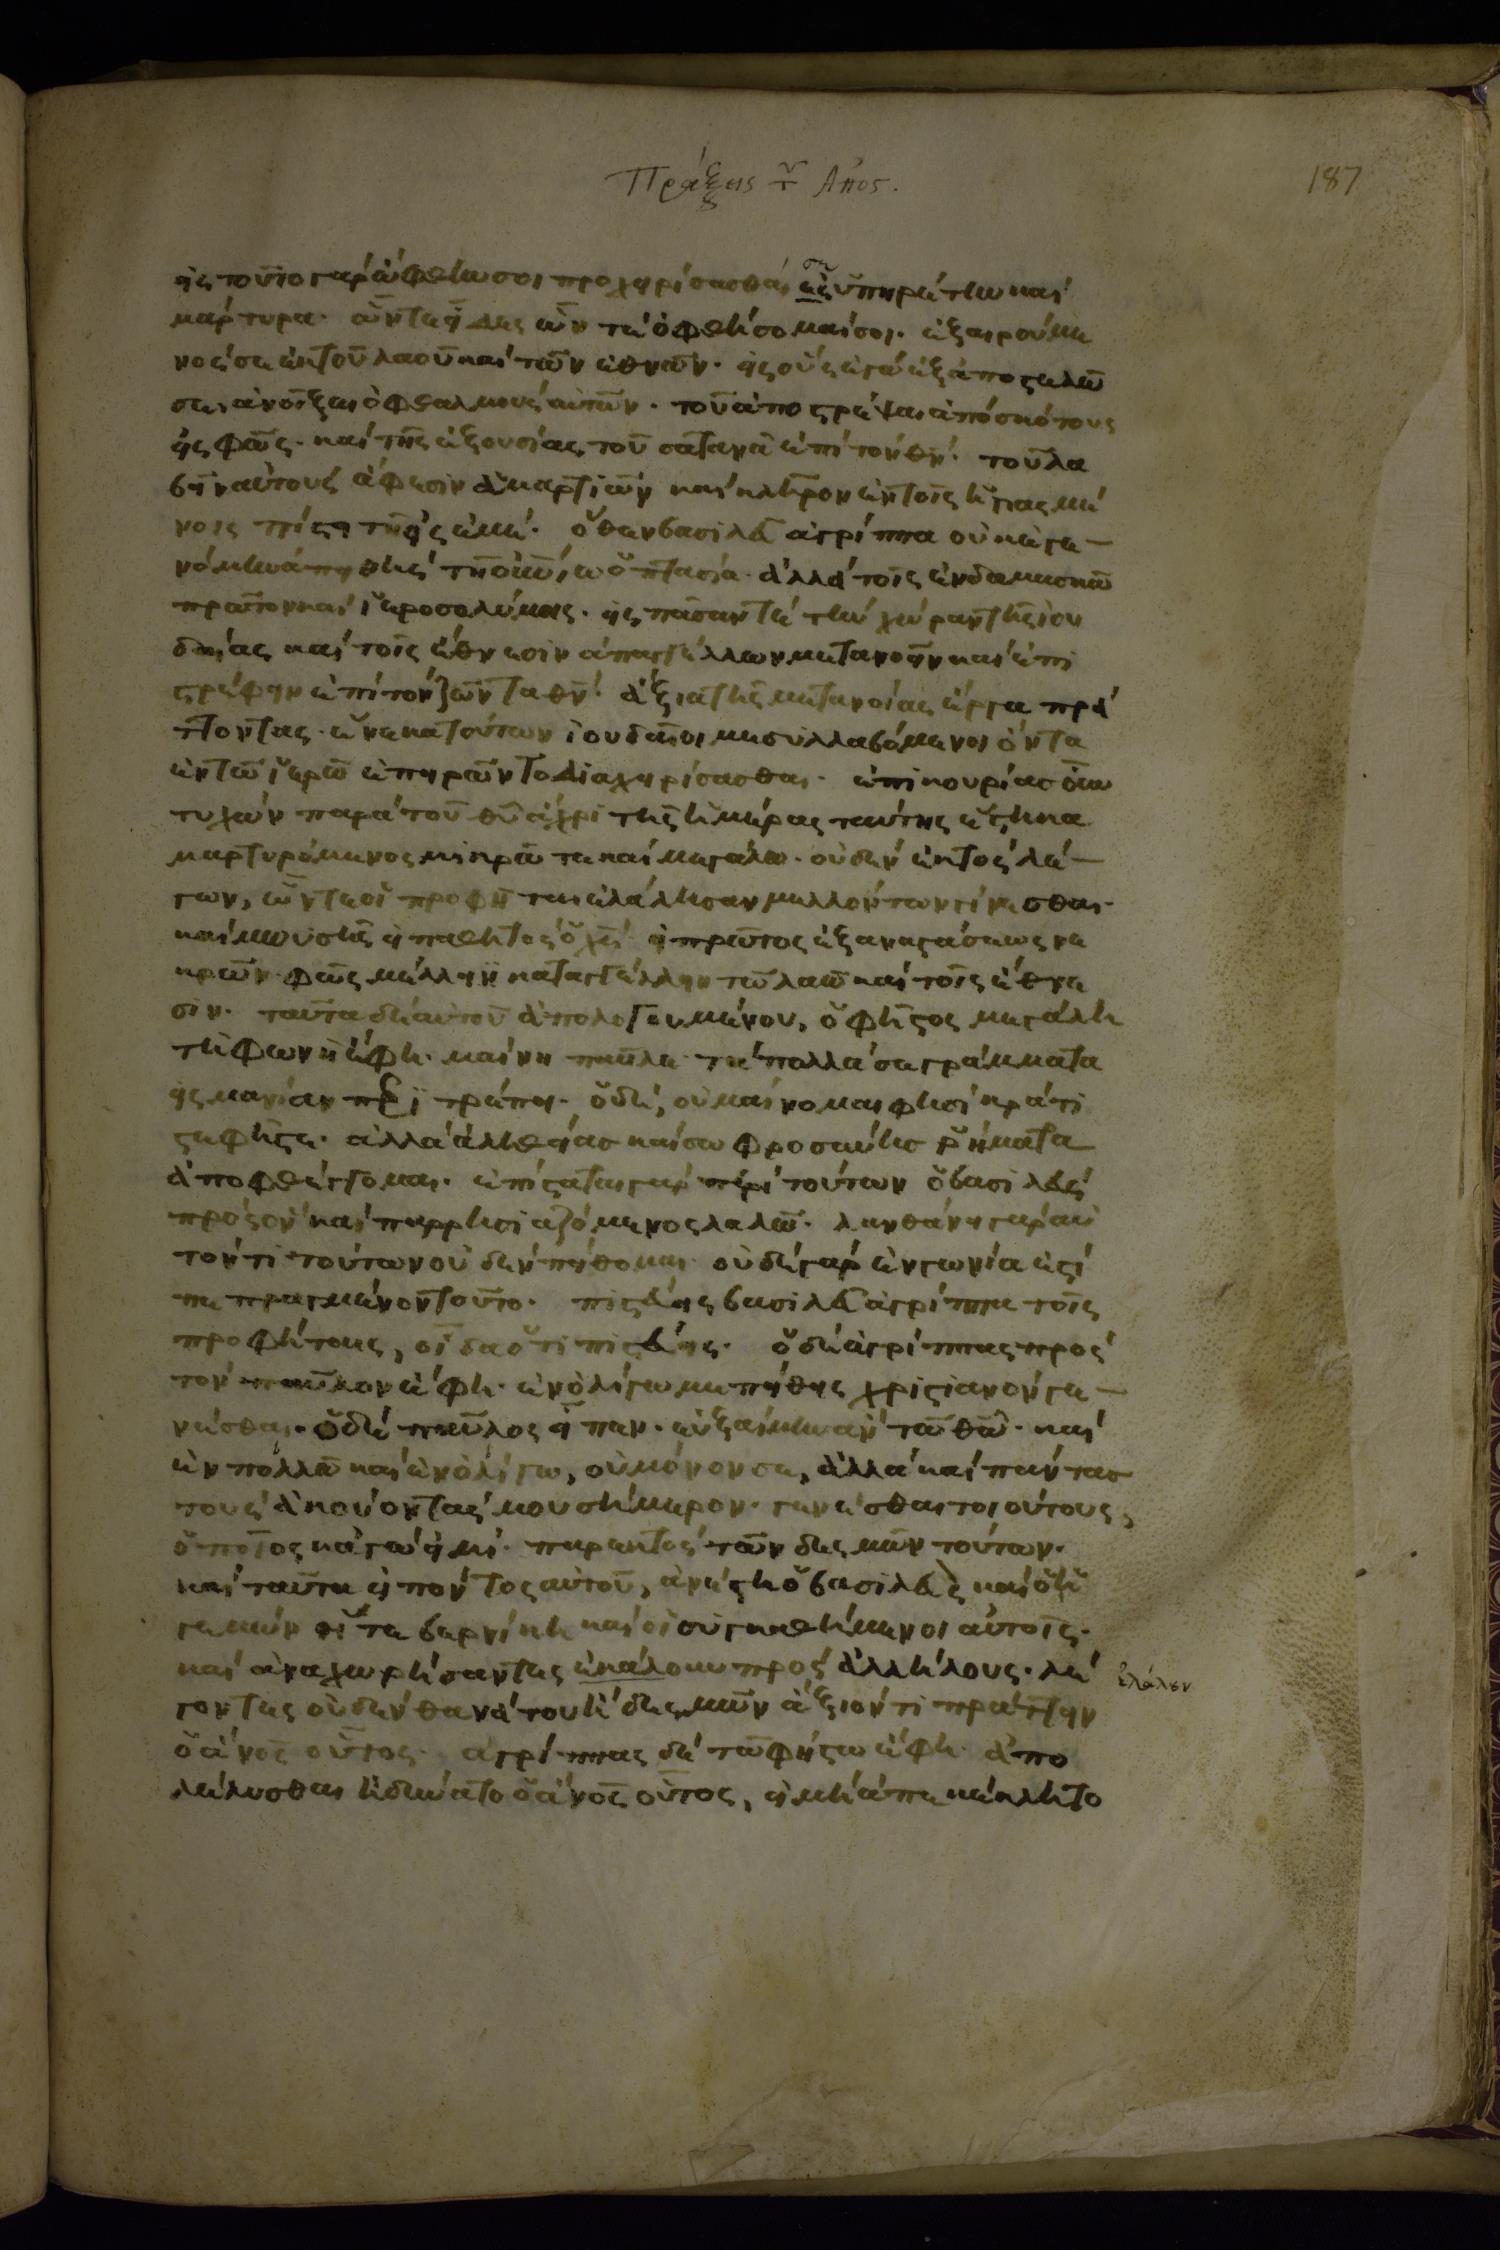 Πράξεις τ Απος.
187
εἰς τοῦτο γαρ ὤφθην σοι προχειρίσασθαί σε εἰς ὑπηρέτην καὶ
μάρτυρα· ὧν τε εἶδες ὧν τε ὀφθήσομαί σοι· ἐξαιρούμε
νός σε ἐκ τοῦ λαοῦ καὶ τῶν ἐθνῶν· εἰς οὓς ἐγώ ἐξαποστελῶ
σε, ἀνοῖξαι ὀφθαλμούς αὐτῶν· τοῦ ἀποστρέψαι ἀπό σκότους
εἰς φῶς· καὶ τῆς ἐξουσίας τοῦ σατανᾶ ἐπὶ τὸν θν· τοῦ λα
βεῖν αὐτούς ἄφεσιν ἁμαρτιῶν καὶ κλῆρον ἐν τοῖς ἡγιασμέ
νοις πίστει τῇ εἰς ἐμέ· ὅθεν βασιλεῦ ἀγρίππα οὐκ ἐγε
νόμην ἀπειθής τῇ οὐνίω ὀπτασία· ἀλλά τοῖς ἐν δαμασκῶ
πρῶτον καὶ ἱεροσολύμοις· εἰς πᾶσαν τε τὴν χώραν τῆς ἰου
δαίας καὶ τοῖς ἔθνεσιν ἀπαγγέλλων μετανοεῖν καὶ ἐπι
στρέφειν ἐπὶ τὸν ζῶντα θν· ἄξια τῆς μετανοίας ἔργα πρά
ττοντας· ἕνεκα τούτων ἰουδαῖοι με συλλαβόμενοι ὄντα
ἐν τῶ ἱερῶ ἐπειρῶντο διαχειρίσασθαι· ἐπικουρίας οὖν
τυχών παρά τοῦ θυ ἄχρι τῆς ἡμέρας ταύτης ἕστηκα
μαρτυρόμενος μικρῶ τε καὶ μεγάλω· οὐδέν ἐκτός λέ
γων, ὧν τε οἱ προφῆται ἐλάλησαν μελλόντων γίνεσθαι·
καὶ μωυσῆς εἰ παθητός ὁ χς· εἰ πρῶτος ἐξ αναστάσεως νε
κρῶν φῶς μέλλει καταγγέλλειν τῶ λαῶ καὶ τοῖς ἔθνε
σιν· ταῦτα δέ αὐτοῦ ἀπολογουμένου, ὁ φῆστος μεγάλη
τῇ φωνῇ ἔφη· μαίνη παῦλε· τά πολλά σε γράμματα
εἰς μανίαν περιτρέπει· ὁ δέ, οὐ μαίνομαι φησί κράτι
στε φῆστε· ἀλλά ἀληθείας καὶ σωφροσύνης ῥήματα
ἀποφθέγγομαι· ἐπίσταται γαρ περὶ τούτων ὁ βασιλεύς
πρός ὅν καὶ παρρησιαζόμενος λαλῶ· λανθάνει γαρ αὐ
τόν τι τούτων οὐδέν πείθομαι· οὐδέ γαρ ἐν γωνία ἐστί
πεπραγμένον τοῦτο· πιστεύεις βασιλεῦ ἀγρίππα τοῖς
προφήταις, οἶδα ὅτι πιστεύεις· ὁ δέ ἀγρίππας πρός
τόν παῦλον ἔφη· ἐν ὀλίγω με πείθεις χριστιανόν γε
νέσθαι· ὁ δέ παῦλος εἶπεν· εὐξαίμην ἄν τῶ θῶ· καὶ
ἐν πολλῶ καὶ ἐν ὀλίγω, οὐ μόνον σε, ἀλλά καὶ πάντας
τούς ἀκούοντάς μου σήμερον· γενέσθαι τοιούτους,
ὁποῖος κἀγώ εἰμι· παρεκτός τῶν δεσμῶν τούτων·
καὶ ταῦτα εἰπόντος αὐτοῦ, ἀνέστη ὁ βασιλεύς καὶ ὁ ἡ
γεμών ἥ τε βερνίκη καὶ οἱ συγκαθήμενοι αὐτοῖς·
καὶ ἀναχωρήσαντες ἐκάλουν προς ἀλλήλους· λέ
ἐλάλουν
γοντες οὐδέν θανάτου ἤ δεσμῶν ἄξιόν τι πράττειν
ὁ ἄνος οὗτος· ἀγρίππας δέ τῶ φήστω ἔφη· ἀπο
λελύσθαι ἠδύνατο ὁ ἄνος οὗτος, εἰ μή ἐπεκέκλητο